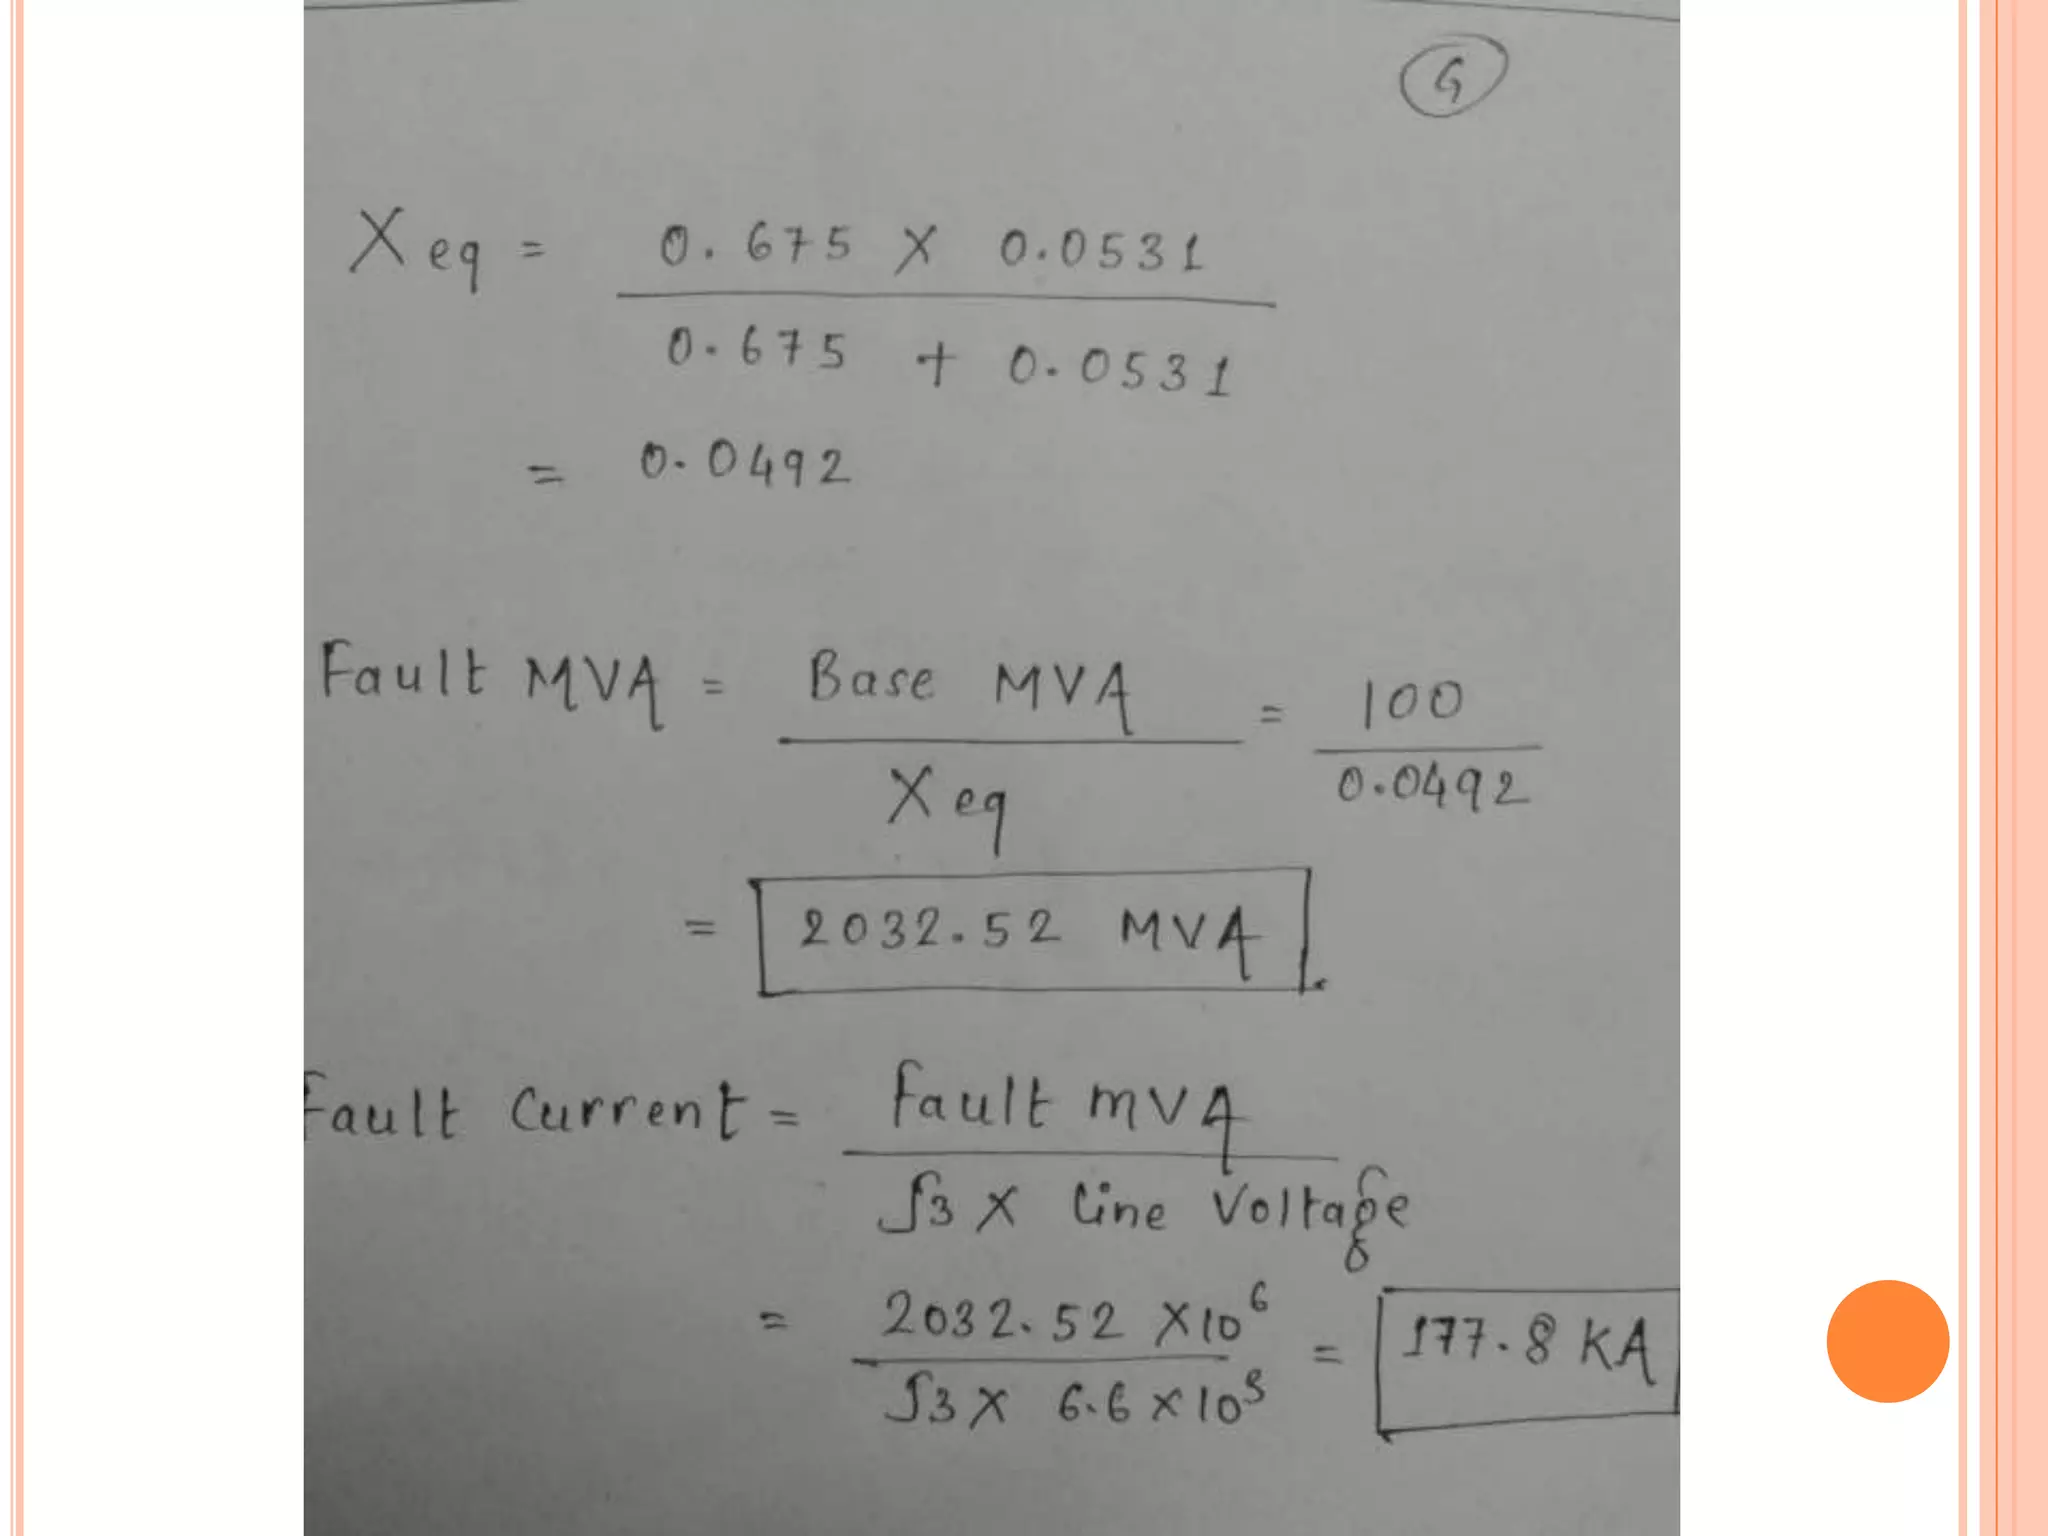 G
Xeq = 0.675 X 0.0531
0.675 + 0.0531
= 0.0492
Fault MVA = Base MVA = 100
Xeq 0.0492
= 2032.52 MVA.
Fault Current = Fault MVA
√3 X Line Voltage
= 2032.52 X10⁶ = 177.8 KA
√3 X 6.6 X10³